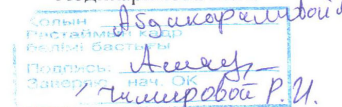 Қолын Абдикаримовой
Растаймын кадр
бөлімі бастығы
Подпись
Заверяю нач. ОК
Темировой Р.И.